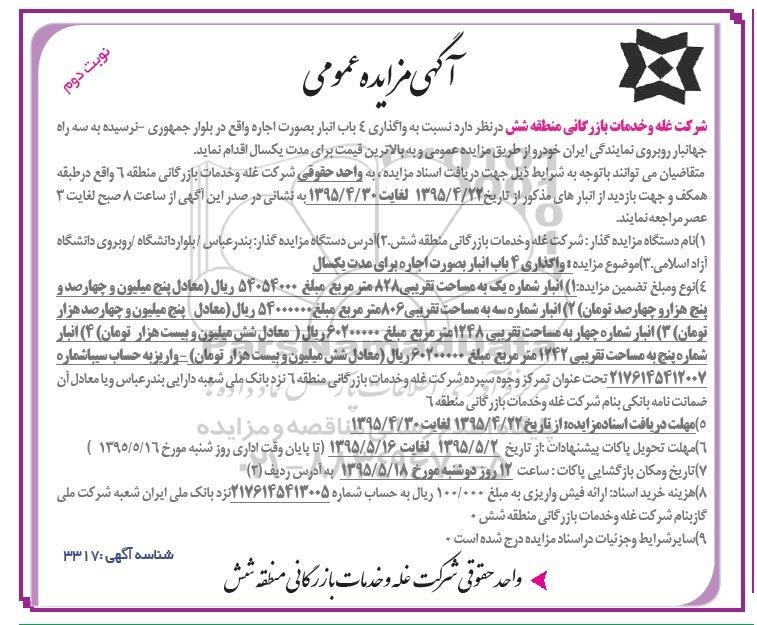 نوبت دوم
آگهی مزایده عمومی
شرکت غله وخدمات بازرگانی منطقه شش درنظر دارد نسبت به واگذاری ٤ باب انبار بصورت اجاره واقع در بلوار جمهوری -نرسیده به سه راه
جهانبار روبروی نمایندگی ایران خودرو از طریق مزایده عمومی و به بالاترین قیمت برای مدت یکسال اقدام نماید.
متقاضیان می توانند باتوجه به شرایط ذیل جهت دریافت اسناد مزایده ، به واحد حقوقی شرکت غله وخدمات بازرگانی منطقه ٦ واقع درطبقه
همکف و جهت بازدید از انبار های مذکور از تاریخ ١٣٩٥/٤/٢٢ لغایت ١٣٩٥/٤/٣٠ به نشانی در صدر این آگهی از ساعت ٨ صبح لغایت ٣
عصر مراجعه نمایند.
١)نام دستگاه مزایده گذار : شرکت غله وخدمات بازرگانی منطقه شش.٢)آدرس دستگاه مزایده گذار: بندرعباس / بلواردانشگاه /روبروی دانشگاه
آزاد اسلامی.٣)موضوع مزایده : واگذاری ٤ باب انبار بصورت اجاره برای مدت یکسال
٤)نوع ومبلغ تضمین مزایده:١) انبار شماره یک به مساحت تقریبی ٨٢٨ متر مربع مبلغ ٥٤٠٥٤٠٠٠ ریال (معادل پنج میلیون و چهارصد و
پنج هزارو چهارصد تومان) ٢) انبار شماره سه به مساحت تقریبی ٨٠٦متر مربع مبلغ ٥٤٠٠٠٠٠٠ ریال (معادل پنج میلیون و چهارصدهزار
تومان) ٣) انبار شماره چهار به مساحت تقریبی ١٢٤٨متر مربع مبلغ ٦٠٢٠٠٠٠٠ ریال ( معادل شش میلیون و بیست هزار تومان) ٤) انبار
شماره پنج به مساحت تقریبی ١٢٤٢ متر مربع مبلغ ٦٠٢٠٠٠٠٠ ریال (معادل شش میلیون و بیست هزار تومان) -واریز به حساب سیباشماره
٢١٧٦١٤٥٤١٢٠٠٧ تحت عنوان تمرکز وجوه سپرده شرکت غله وخدمات بازرگانی منطقه ٦ نزد بانک ملی شعبه دارایی بندرعباس ویا معادل آن
ضمانت نامه بانکی بنام شرکت غله وخدمات بازرگانی منطقه ٦
٥)مهلت دریافت اسنادمزایده: از تاریخ ١٣٩٥/٤/٢٢ لغایت ١٣٩٥/٤/٣٠
٦)مهلت تحویل پاکات پیشنهادات :از تاریخ ١٣٩٥/٥/٢ لغایت ١٣٩٥/٥/١٦ (تا پایان وقت اداری روز شنبه مورخ ١٣٩٥/٥/١٦ )
٧)تاریخ ومکان بازگشایی پاکات : ساعت ١٢ روز دوشنبه مورخ ١٣٩٥/٥/١٨ به آدرس ردیف (٢)
٨)هزینه خرید اسناد: ارائه فیش واریزی به مبلغ ١٠٠/٠٠٠ ریال به حساب شماره ٢١٧٦١٤٥٤١٣٠٠٥نزد بانک ملی ایران شعبه شرکت ملی
گازبنام شرکت غله وخدمات بازرگانی منطقه شش ٠
٩)سایرشرایط وجزئیات دراسناد مزایده درج شده است ٠
شناسه آگهی :٣٣١٧
واحد حقوقی شرکت غله و خدمات بازرگانی منطقه شش